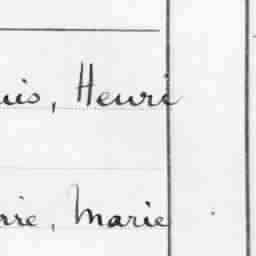 uis, Henri
rrie, Marie